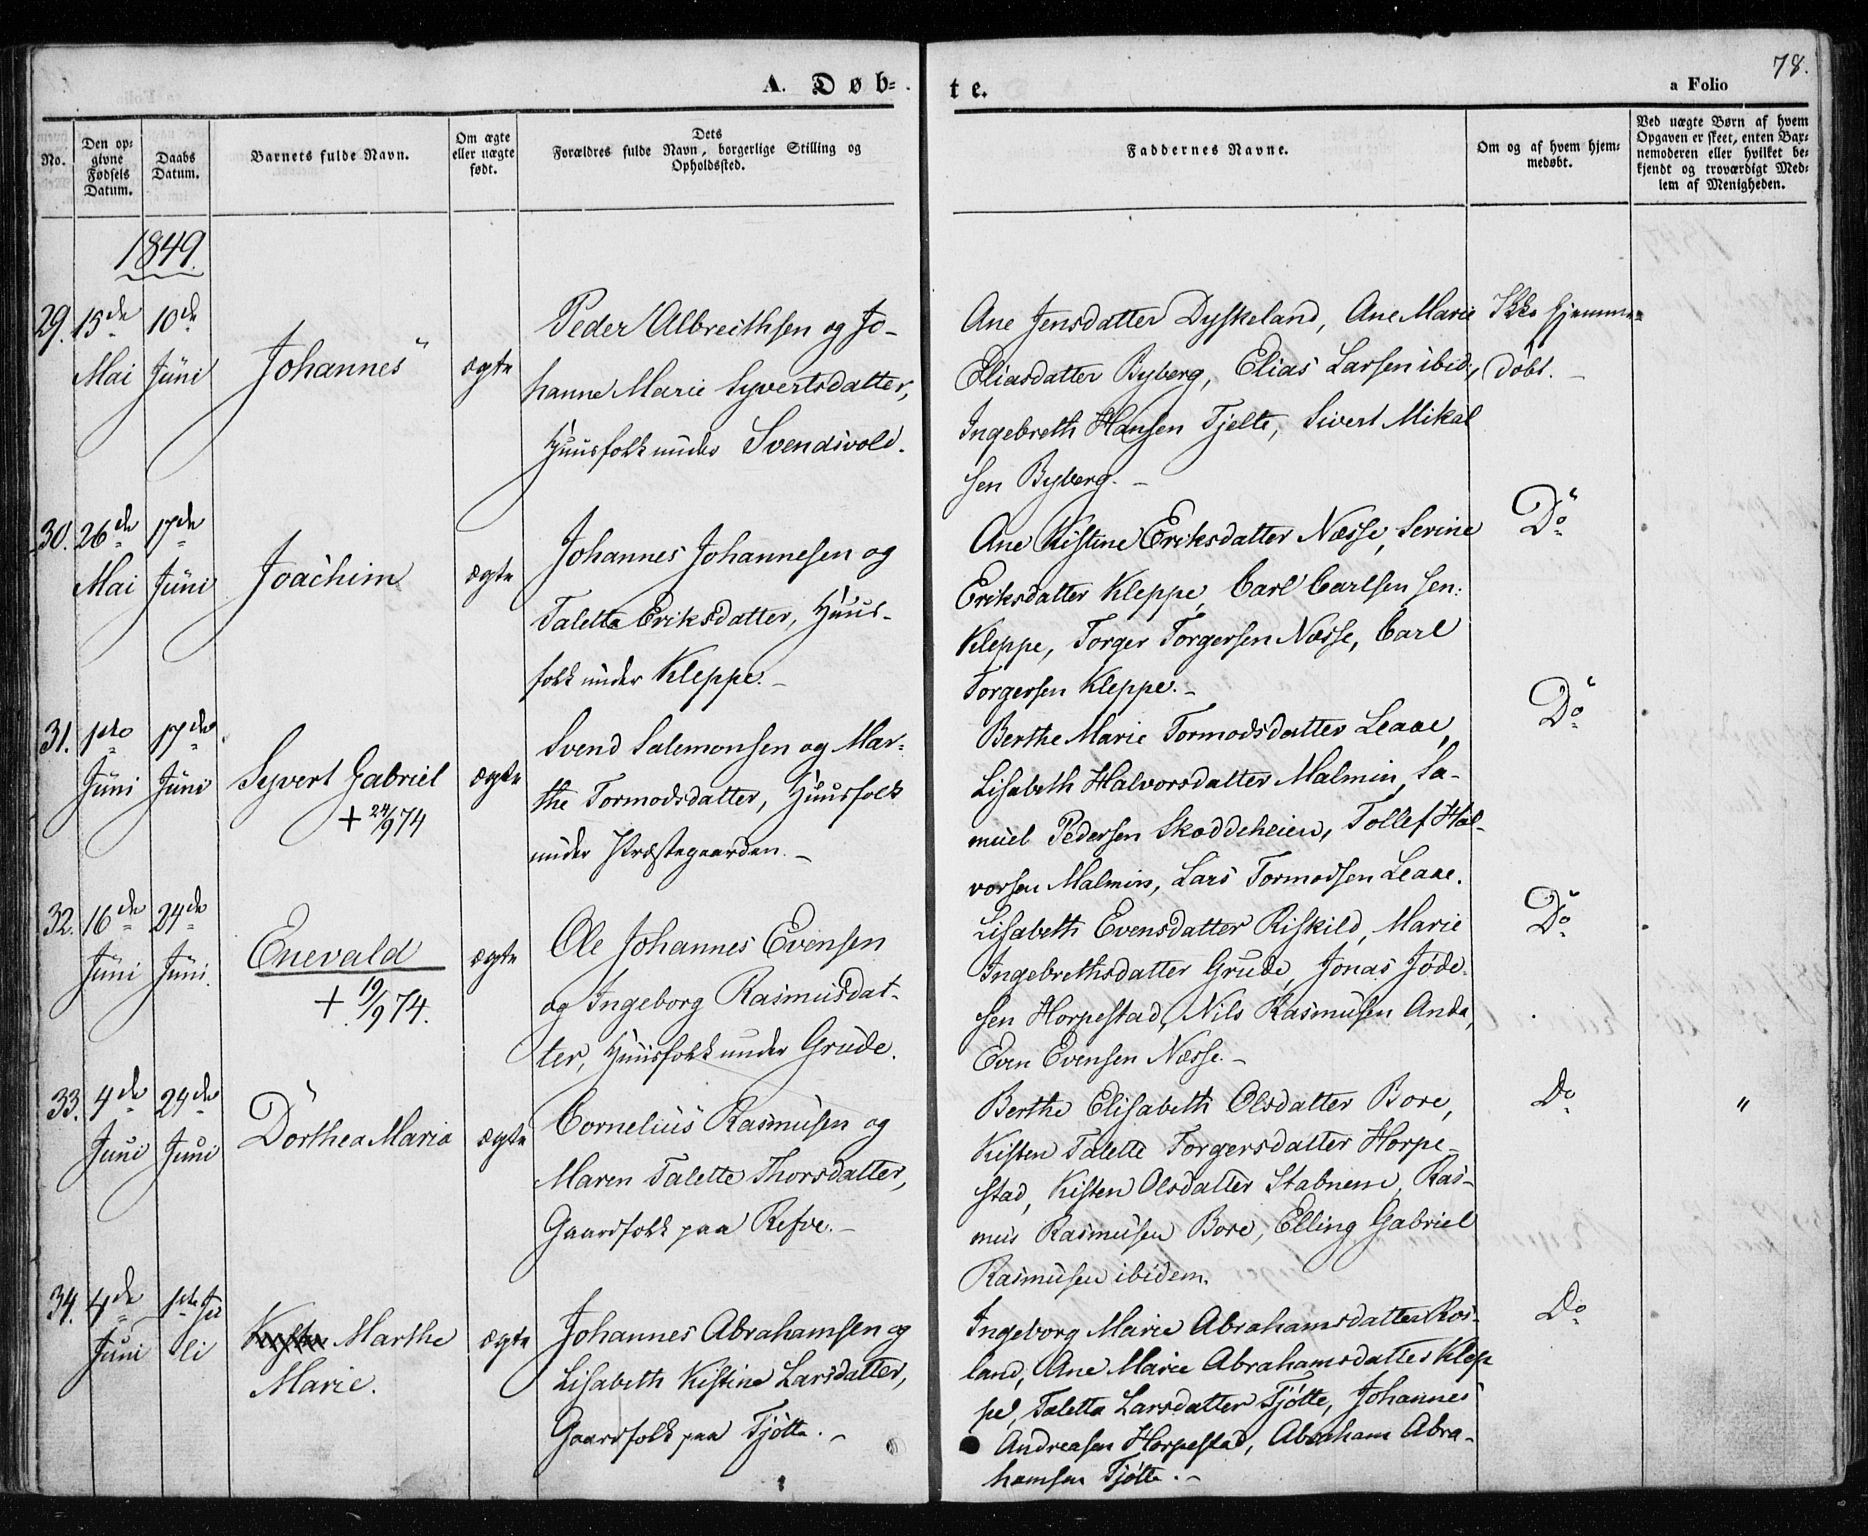 78.
A. Døb-
te.
a Folio
No.
Den op-
givne
Fødsels
Datum.
Daabs
Datum.
Barnets fulde Navn.
Om ægte
eller uægte
født.
Dets
Forældres fulde Navn, borgerlige Stilling og
Opholdssted.
Faddernes Navne.
Om og af hvem hjem-
medøbt.
Ved uægte Børn af hvem
Opgaven er skeet, enten Bar-
nemoderen eller hvilket be-
kjendt og troværdigt Med-
lem af Menigheden.
1849.
29.
15de
Mai
10de
Juni
Johannes
ægte
Peder Albreithsen og Jo-
hanne Marie Syvertsdatter,
Huusfolk under Svendsvold.
Ane Jensdatter Dyskeland, Ane Marie
Eliasdatter Byberg, Elias Larsen ibid.,
Ingebreth Hansen Tjelte, Sivert Mikal
sen Byberg. –
Ikke hjemme-
døbt. –
30.
26de
Mai
17de
Juni
Joachim
ægte
Johannes Johannesen og
Taletta Eriksdatter, Huus-
folk under Kleppe. –
Ane Kistine Eriksdatter Næsse, Serine
Eriksdatter Kleppe, Carl Carlsen sen:
Kleppe, Torger Torgersen Næsse, Carl
Torgersen Kleppe. –
Do
31.
1ste
Juni
17de
Juni
Syvert Gabriel
+ 24/9 74
ægte
Svend Salemonsen og Mar-
the Tormodsdatter, Huusfolk
under Præstegaarden. –
Berthe Marie Tormodsdatter Leaae,
Lisabeth Halvorsdatter Malmin, Sa-
muel Pedersen Skaddeheien, Tollef Hal-
vorsen Malmin, Lars Tormodsen Leaae.
Do
32.
16de
Juni
24de
Juni.
Enevald
+ 19/9 74.
ægte
Ole Johannes Evensen
og Ingeborg Rasmusdat-
ter, Huusfolk under Grude.
Lisabeth Evensdatter Riskild, Marie
Ingebrethsdatter Grude, Jonas Jøde-
sen Horpestad, Nils Rasmusen Anda,
Even Evensen Næsse. –
Do
33.
4de
Juni
24de
Juni
Dorthea Maria
ægte
Cornelius Rasmusen og
Maren Talette Thorsdatter,
Gaardfolk paa Refve. –
Berthe Elisabeth Olsdatter Bore,
Kisten Talette Torgersdatter Horpe-
stad, Kisten Olsdatter Stabnem, Ras-
mus Rasmusen Bore, Elling Gabriel
Rasmusen ibidem.
Do
"
34.
4de
Juni
1ste Ju
li
Marthe
Marie.
ægte
Johannes Abrahamsen og
Lisabeth Kistine Larsdatter,
Gaardfolk paa Tjøtta. –
Ingeborg Marie Abrahamsdatter Ros-
land, Ane Marie Abrahamsdatter Klep
pe, Taletta Larsdatter Tjøtte, Johannes
Andreasen Horpestad, Abraham Abra-
hamsen Tjøtte. –
Do